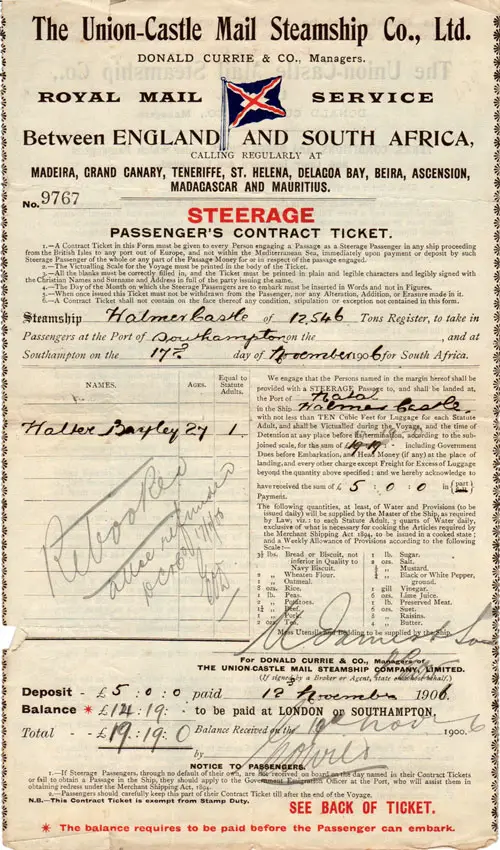 The Union-Castle Mail Steamship Co., Ltd.
DONALD CURRIE & CO., Managers.
ROYAL MAIL SERVICE
Between ENGLAND AND SOUTH AFRICA,
CALLING REGULARLY AT
MADEIRA, GRAND CANARY, TENERIFFE, ST. HELENA, DELAGOA BAY, BEIRA, ASCENSION,
MADAGASCAR AND MAURITIUS.
No. 9767
STEERAGE
PASSENGER'S CONTRACT TICKET.
1.—A Contract Ticket in this Form must be given to every Person engaging a Passage as a Steerage Passenger in any ship proceeding
from the British Isles to any port out of Europe, and not within the Mediterranean Sea, immediately upon payment or deposit by such
Steerage Passenger of the whole or any part of the Passage Money for or in respect of the passage engaged.
2.—The Victualling Scale for the Voyage must be printed in the body of the Ticket.
3.—All the blanks must be correctly filled in, and the Ticket must be printed in plain and legible characters and legibly signed with
the Christian Names and Surname and Address in full of the party issuing the same.
4.—The Day of the Month on which the Steerage Passengers are to embark must be inserted in Words and not in Figures.
5.—When once issued this Ticket must not be withdrawn from the Passenger, nor any Alteration, Addition, or Erasure made in it.
6.—A Contract Ticket shall not contain on the face thereof any condition, stipulation or exception not contained in this form.
Steamship Walmer Castle of 12,546 Tons Register, to take in
Passengers at the Port of Southampton on the , and at
Southampton on the 17th day of November 1906 for South Africa.
NAMES. AGES. Equal to Statute Adults.
Walter Bayley 27 1.
We engage that the Persons named in the margin hereof shall be
provided with a STEERAGE Passage to, and shall be landed at,
the Port of Natal
in the Ship Walmer Castle
with not less than TEN Cubic Feet for Luggage for each Statute
Adult, and shall be Victualled during the Voyage, and the time of
Detention at any place before its termination, according to the sub-
joined scale, for the sum of £19.19 including Government
Dues before Embarkation, and Head Money (if any) at the place of
landing, and every other charge except Freight for Excess of Luggage
beyond the quantity above specified; and we hereby acknowledge to
have received the sum of £5 : 0 : 0 in part
Payment.
The following quantities, at least, of Water and Provisions (to be
issued daily) will be supplied by the Master of the Ship, as required by
Law, viz.: to each Statute Adult, 3 quarts of Water daily,
exclusive of what is necessary for cooking the Articles required by
the Merchant Shipping Act 1894, to be issued in a cooked state;
and a Weekly Allowance of Provisions according to the following
Scale:—
3½ lbs. Bread or Biscuit, not inferior in quality to Navy Biscuit.
2 „ Wheaten Flour.
1 „ Oatmeal.
8 ozs. Rice.
2 „ Potatoes.
1¼ „ Beef.
1 „ Pork.
2 ozs. Tea.
1 lb. Sugar.
2 ozs. Salt.
½ „ Mustard.
¼ „ Black or White Pepper, ground.
1 gill Vinegar.
6 ozs. Lime Juice.
1 lb. Preserved Meat.
6 ozs. Suet.
8 „ Raisins.
4 „ Butter.
Mess Utensils and Bedding to be supplied by the Ship.
For DONALD CURRIE & CO., Managers of
THE UNION-CASTLE MAIL STEAMSHIP COMPANY, LIMITED.
(If signed by a Broker or Agent, state on whose behalf.)
Deposit - £5 : 0 : 0 paid 12 November 1906.
Balance * £14 : 19 : - to be paid at LONDON or SOUTHAMPTON.
Total - £19 : 19 : 0 Balance Received on the 1900.
by
NOTICE TO PASSENGERS.
1.—If Steerage Passengers, through no default of their own, are not received on board on the day named in their Contract Tickets
or fail to obtain a Passage in the Ship, they should apply to the Government Emigration Officer at the Port, who will assist them in
obtaining redress under the Merchant Shipping Act, 1894.
2.—Passengers should carefully keep this part of their Contract Ticket till after the end of the Voyage.
N.B.—This Contract Ticket is exempt from Stamp Duty.
SEE BACK OF TICKET.
* The balance requires to be paid before the Passenger can embark.